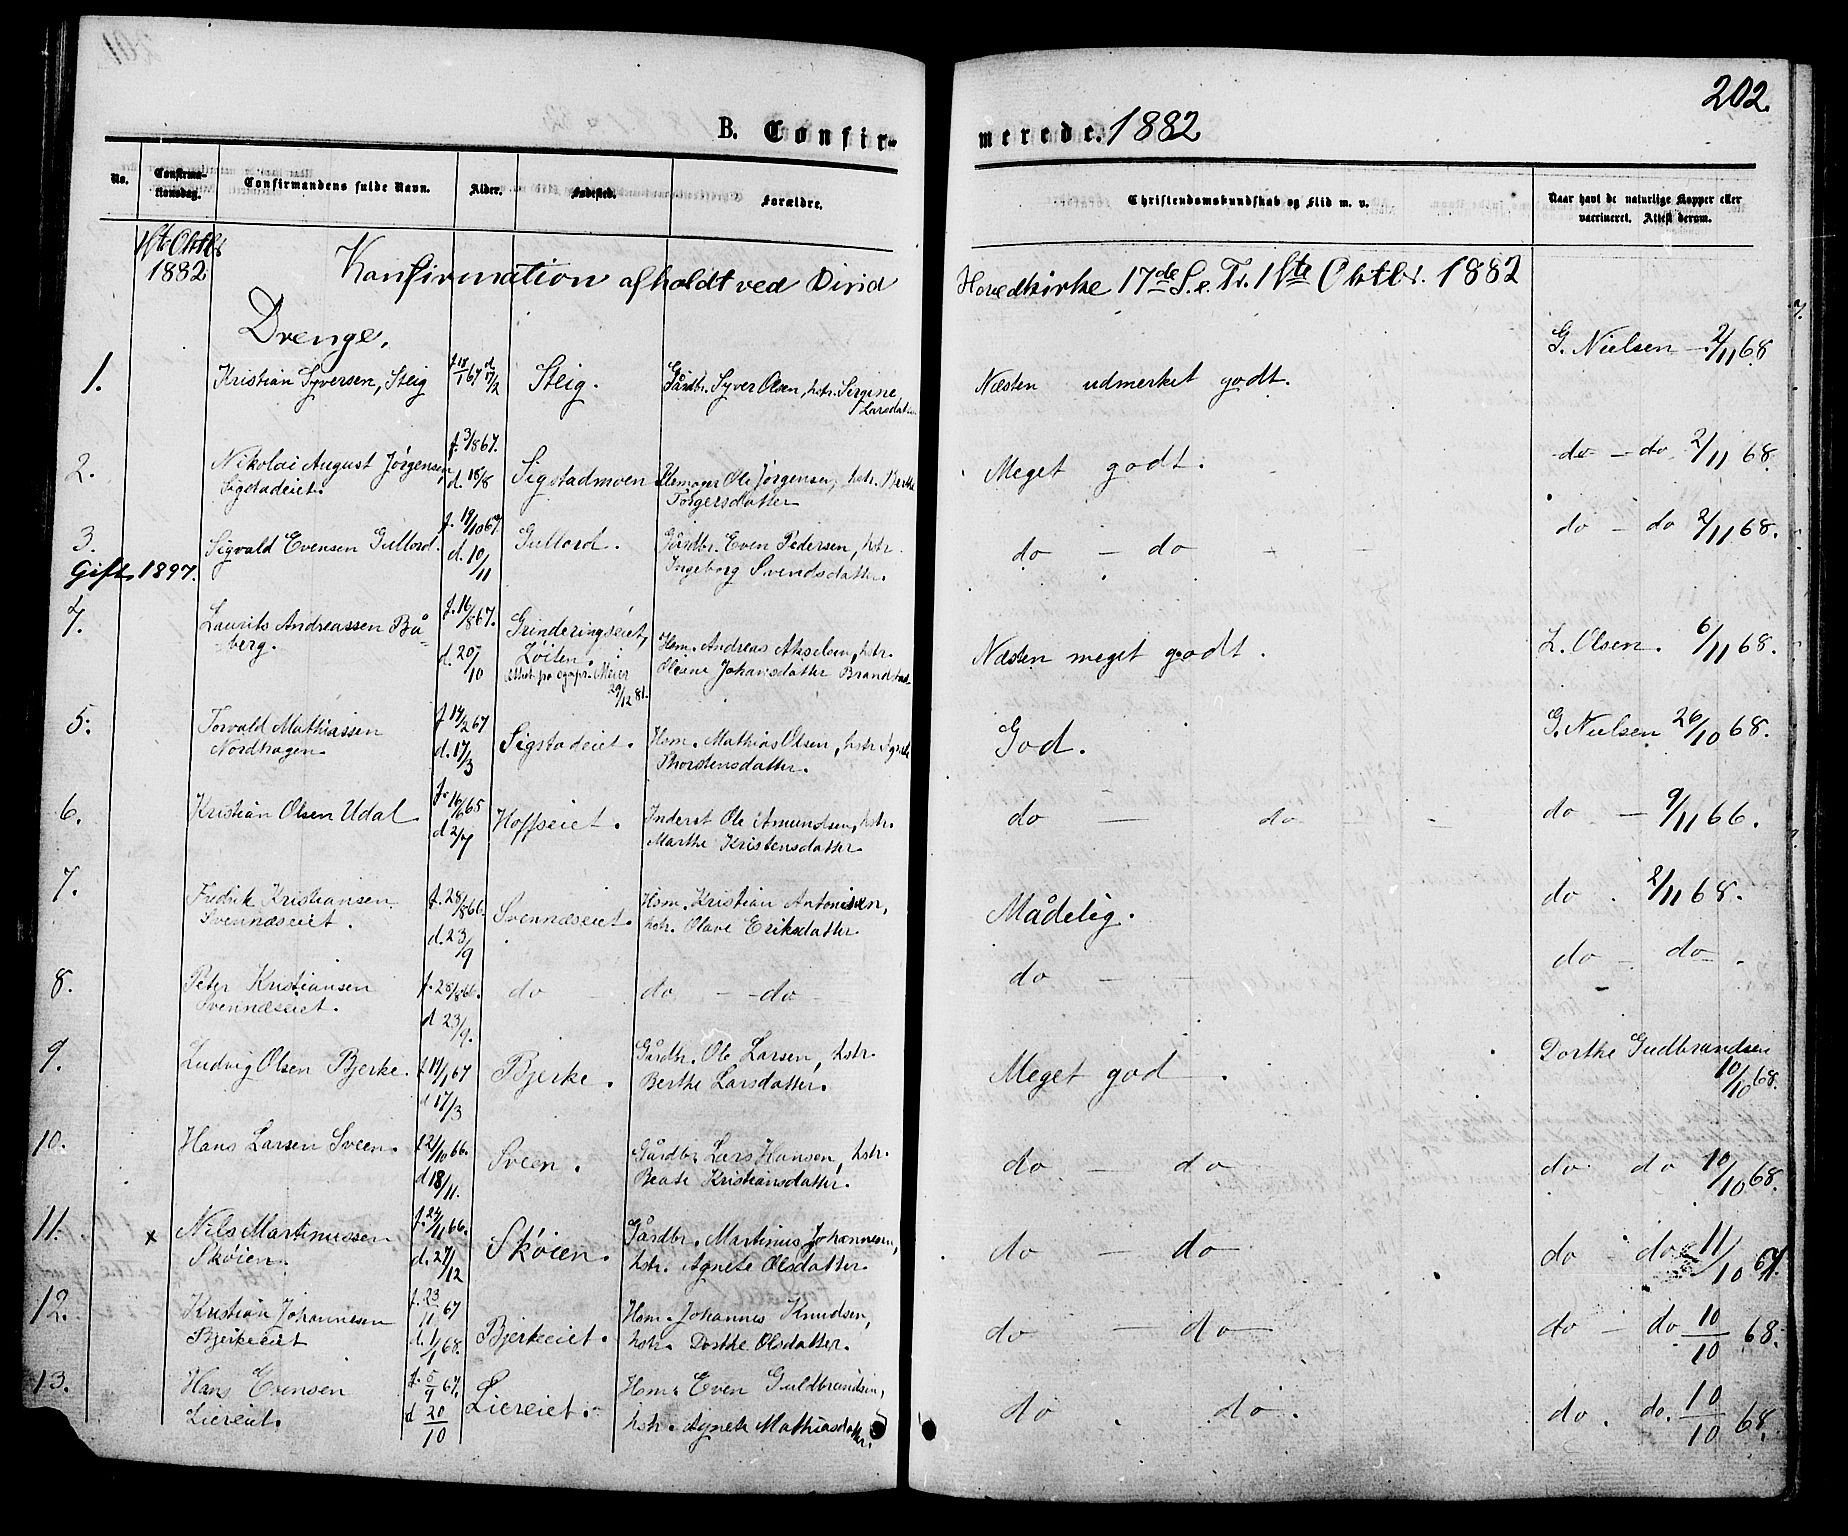 202.
B. Confir-
merede. 1882
No.
Confirma-
tionsdag.
Confirmandens fulde Navn.
Alder.
Fødested.
Forældre.
Christendomskundskab og Flid m. v.
Naar havt de naturlige Kopper eller
vaccineret. Attest derom.
1ste Oktbr
1882
Konfirmation afholdt ved Birid
Hovedkirke 17de S. e. Tr. 1ste Oktbr. 1882
Drenge.
1. Kristian Syversen, Steig f. 18/1 67 d. 17/2 Steig. Gårdbr. Syver Olsen, hstr. Sirgine
Larsdatter
Næsten udmerket godt. G. Nielsen – 2/11 68
2. Nikolai August Jørgensen,
Sigstadeiet. f. 3/8 67. d. 18/8 Sigstadmoen. Ole Jørgensen, hstr. Marthe
Torgersdatter
Meget godt. do – do 2/11 68.
3. Sigvald Evensen Gullord. f. 19/10 67. d. 10/11 Gullord. Gårdbr. Even Pedersen, hstr.
Ingeborg Svendsdatter.
do – do do – do 2/11 68.
Gift 1897.
4. Laurits Andreassen Bå-
berg. f. 16/8 67. d. 20/10 Grinderingseiet,
Løiten.
Attest fra sgpr. Meier
29/12 81.
Hsm. Andreas Akselsen, hstr.
Olesine Johansdatter Brandstad
Næsten meget godt. L. Olsen. 6/11 68.
5. Torvald Mathiassen
Nordhagen. f. 14/2 67 d. 17/3 Sigstadeiet. Hsm. Mathias Olsen, hstr. Agnete
Thorstensdatter.
God. G. Nielsen 26/10 68.
6. Kristian Olsen Udal f. 16/6 65 d. 2/7 Hoffseiet. Inderst Ole Amundsen, hstr.
Marthe Kristensdatter
do – do – do – 9/11 66.
7. Fredrik Kristiansen
Svennæseiet. f. 28/8 66. d. 23/9 Svennæseiet. Hsm. Kristian Antonisen,
hstr. Olave Eriksdatter.
Mådelig. do . 2/11 68.
8. Peter Kristiansen
Svennæseiet. f. 28/8 66. d. 23/9. do – do – do –
do – – do – do – .
9. Ludvig Olsen Bjerke. f. 14/1 67 d. 17/3 Bjerke. Gårdbr. Ole Larsen, hstr.
Berthe Larsdatter.
Meget god. Dorthe Gudbrandsen
10/10 68.
10. Hans Larsen Sveen. f. 21/10 66. d. 18/11. Sveen. Gårdbr. Lars Hansen, hstr.
Beate Kristiansdatter.
do – do do. do 10/10 68.
11. x Nils Martinussen
Skøien. f. 24/11 66. d. 27/12 Skøien. Gårdbr. Martinus Johannesen,
hstr. Agnete Olsdatter.
do – do do do 11/10 67.
12. Kristian Johannesen
Bjerkeeiet f. 23/11 67 d. 1/1 68. Bjerkeeiet. Hsm. Johannes Knudsen,
hstr. Dorthe Olsdatter.
do – do do – do 10/10 68.
13. Hans Evensen
Liereiet. f. 5/9 67. d 20/10 Liereiet. Hsm. Even Guldbrandsen,
hstr. Agnete Mathiasdatter.
do . do. do . do. 10/10 68.